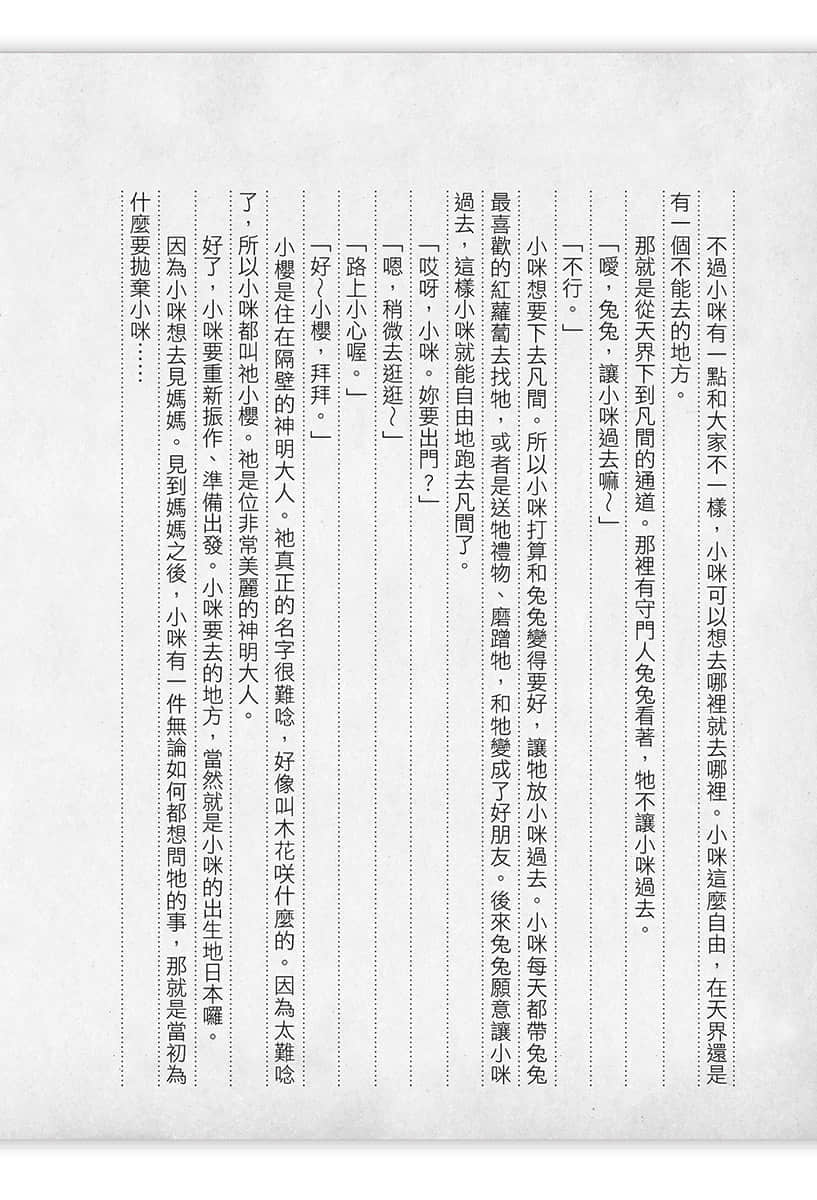 不過小咪有一點和大家不一樣，小咪可以想去哪裡就去哪裡。小咪這麼自由，在天界還是
有一個不能去的地方。
那就是從天界下到凡間的通道。那裡有守門人兔兔看著，牠不讓小咪過去。
「噯，兔兔，讓小咪過去嘛～」
「不行。」
小咪想要下去凡間。所以小咪打算和兔兔變得要好，讓牠放小咪過去。小咪每天都帶兔兔
最喜歡的紅蘿蔔去找牠，或者是送牠禮物、磨蹭牠，和牠變成了好朋友。後來兔兔願意讓小咪
過去，這樣小咪就能自由地跑去凡間了。
「哎呀，小咪。妳要出門？」
「嗯，稍微去逛逛～」
「路上小心喔。」
「好～小櫻，拜拜。」
小櫻是住在隔壁的神明大人。祂真正的名字很難唸，好像叫木花咲什麼的。因為太難唸
了，所以小咪都叫祂小櫻。祂是位非常美麗的神明大人。
好了，小咪要重新振作、準備出發。小咪要去的地方，當然就是小咪的出生地日本囉。
因為小咪想去見媽媽。見到媽媽之後，小咪有一件無論如何都想問牠的事，那就是當初為
什麼要拋棄小咪……